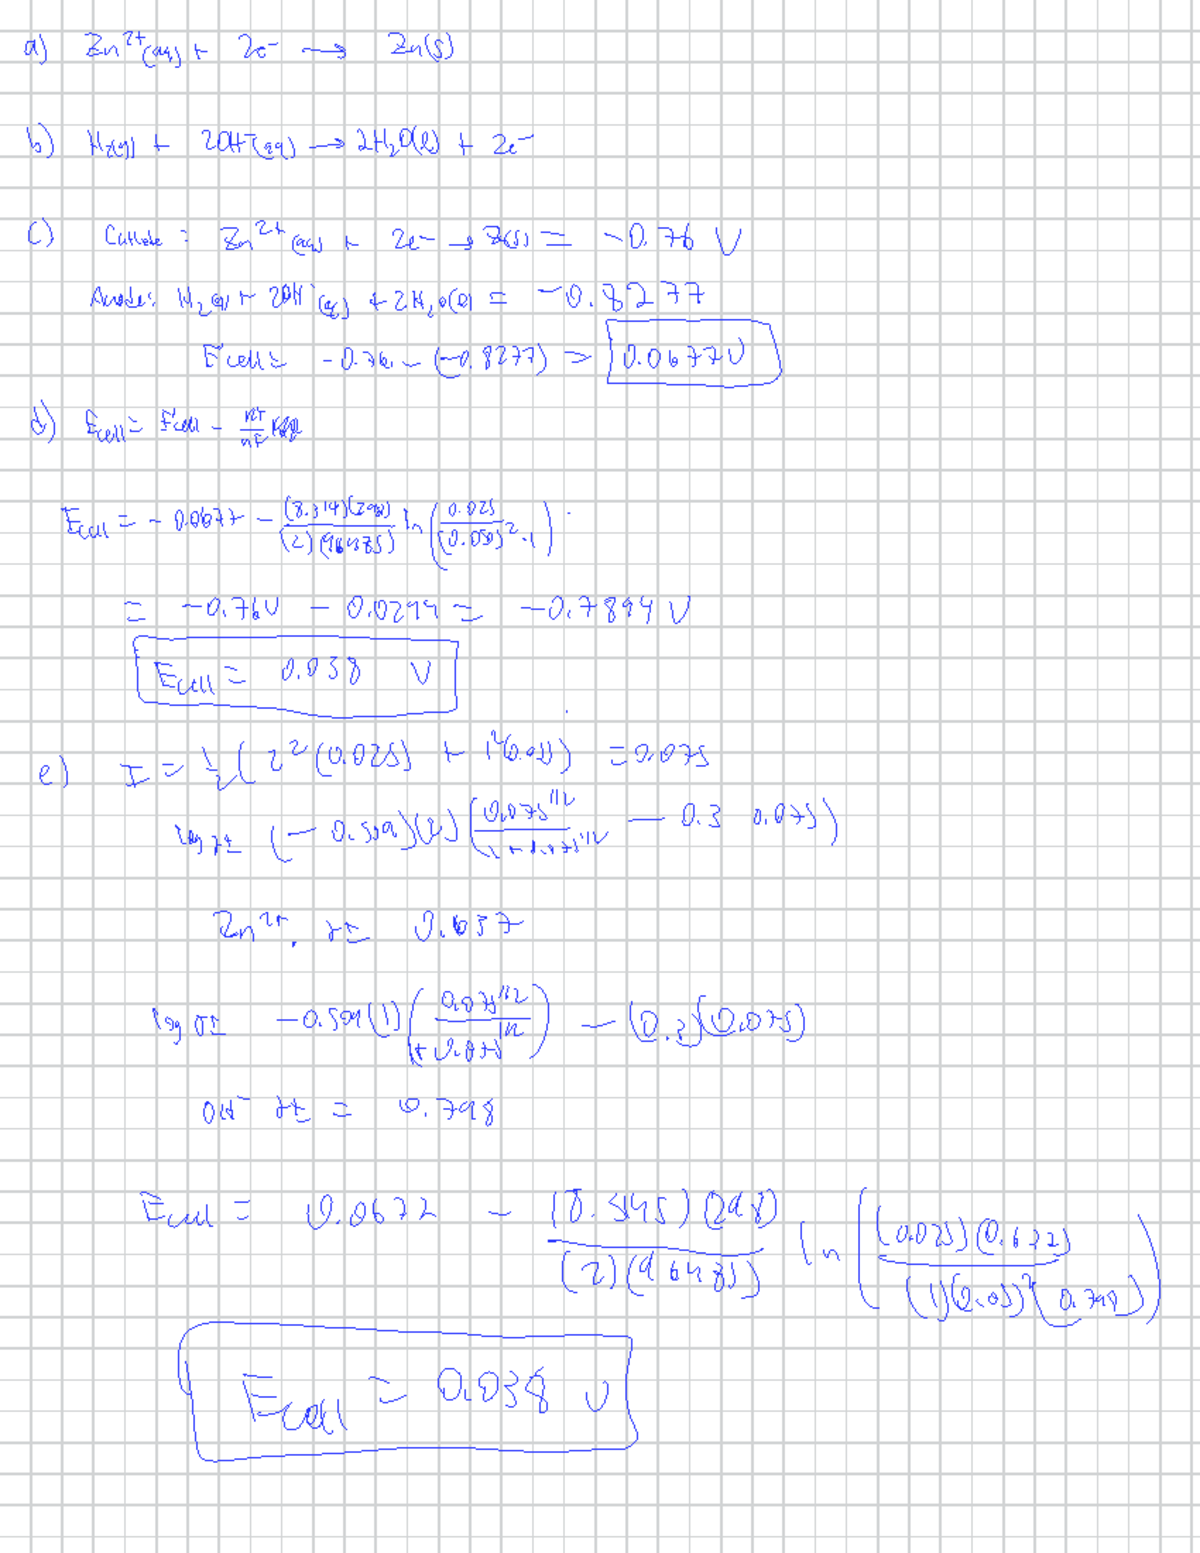 a) Zn²⁺(aq) + 2e⁻ → Zn(s)
b) H₂(g) + 2OH⁻(aq) → 2H₂O(l) + 2e⁻
c) Cathode: Zn²⁺(aq) + 2e⁻ → Zn(s) = -0.76 V
Anode: H₂(g) + 2OH⁻(aq) + 2H₂O(l) = -0.8277
E°cell = -0.76 - (-0.8277) = 0.0677V
d) Ecell = E°cell - RT/nF
Ecell = -0.0677 - (8.314)(298)/(2)(96485) ln(0.025/(0.050)²·1)
= -0.76V - 0.0294 = -0.7894 V
Ecell = 0.038 V
e) I = 1/2 (2²(0.025) + 1²(0.05)) = 0.075
log γ± (-0.509)(2)(0.075^1/2/(1+0.075^1/2) - 0.3 0.075)
Zn²⁺. γ± 0.637
log γ± -0.509(1)(0.075^1/2/(1+0.075^1/2)) - (0.3)(0.075)
OH⁻ γ± = 0.798
Ecell = 0.0677 - (8.3145)(298)/(2)(96485) ln((0.025)(0.637)/(1)(0.05)²(0.798))
Ecell = 0.038 V